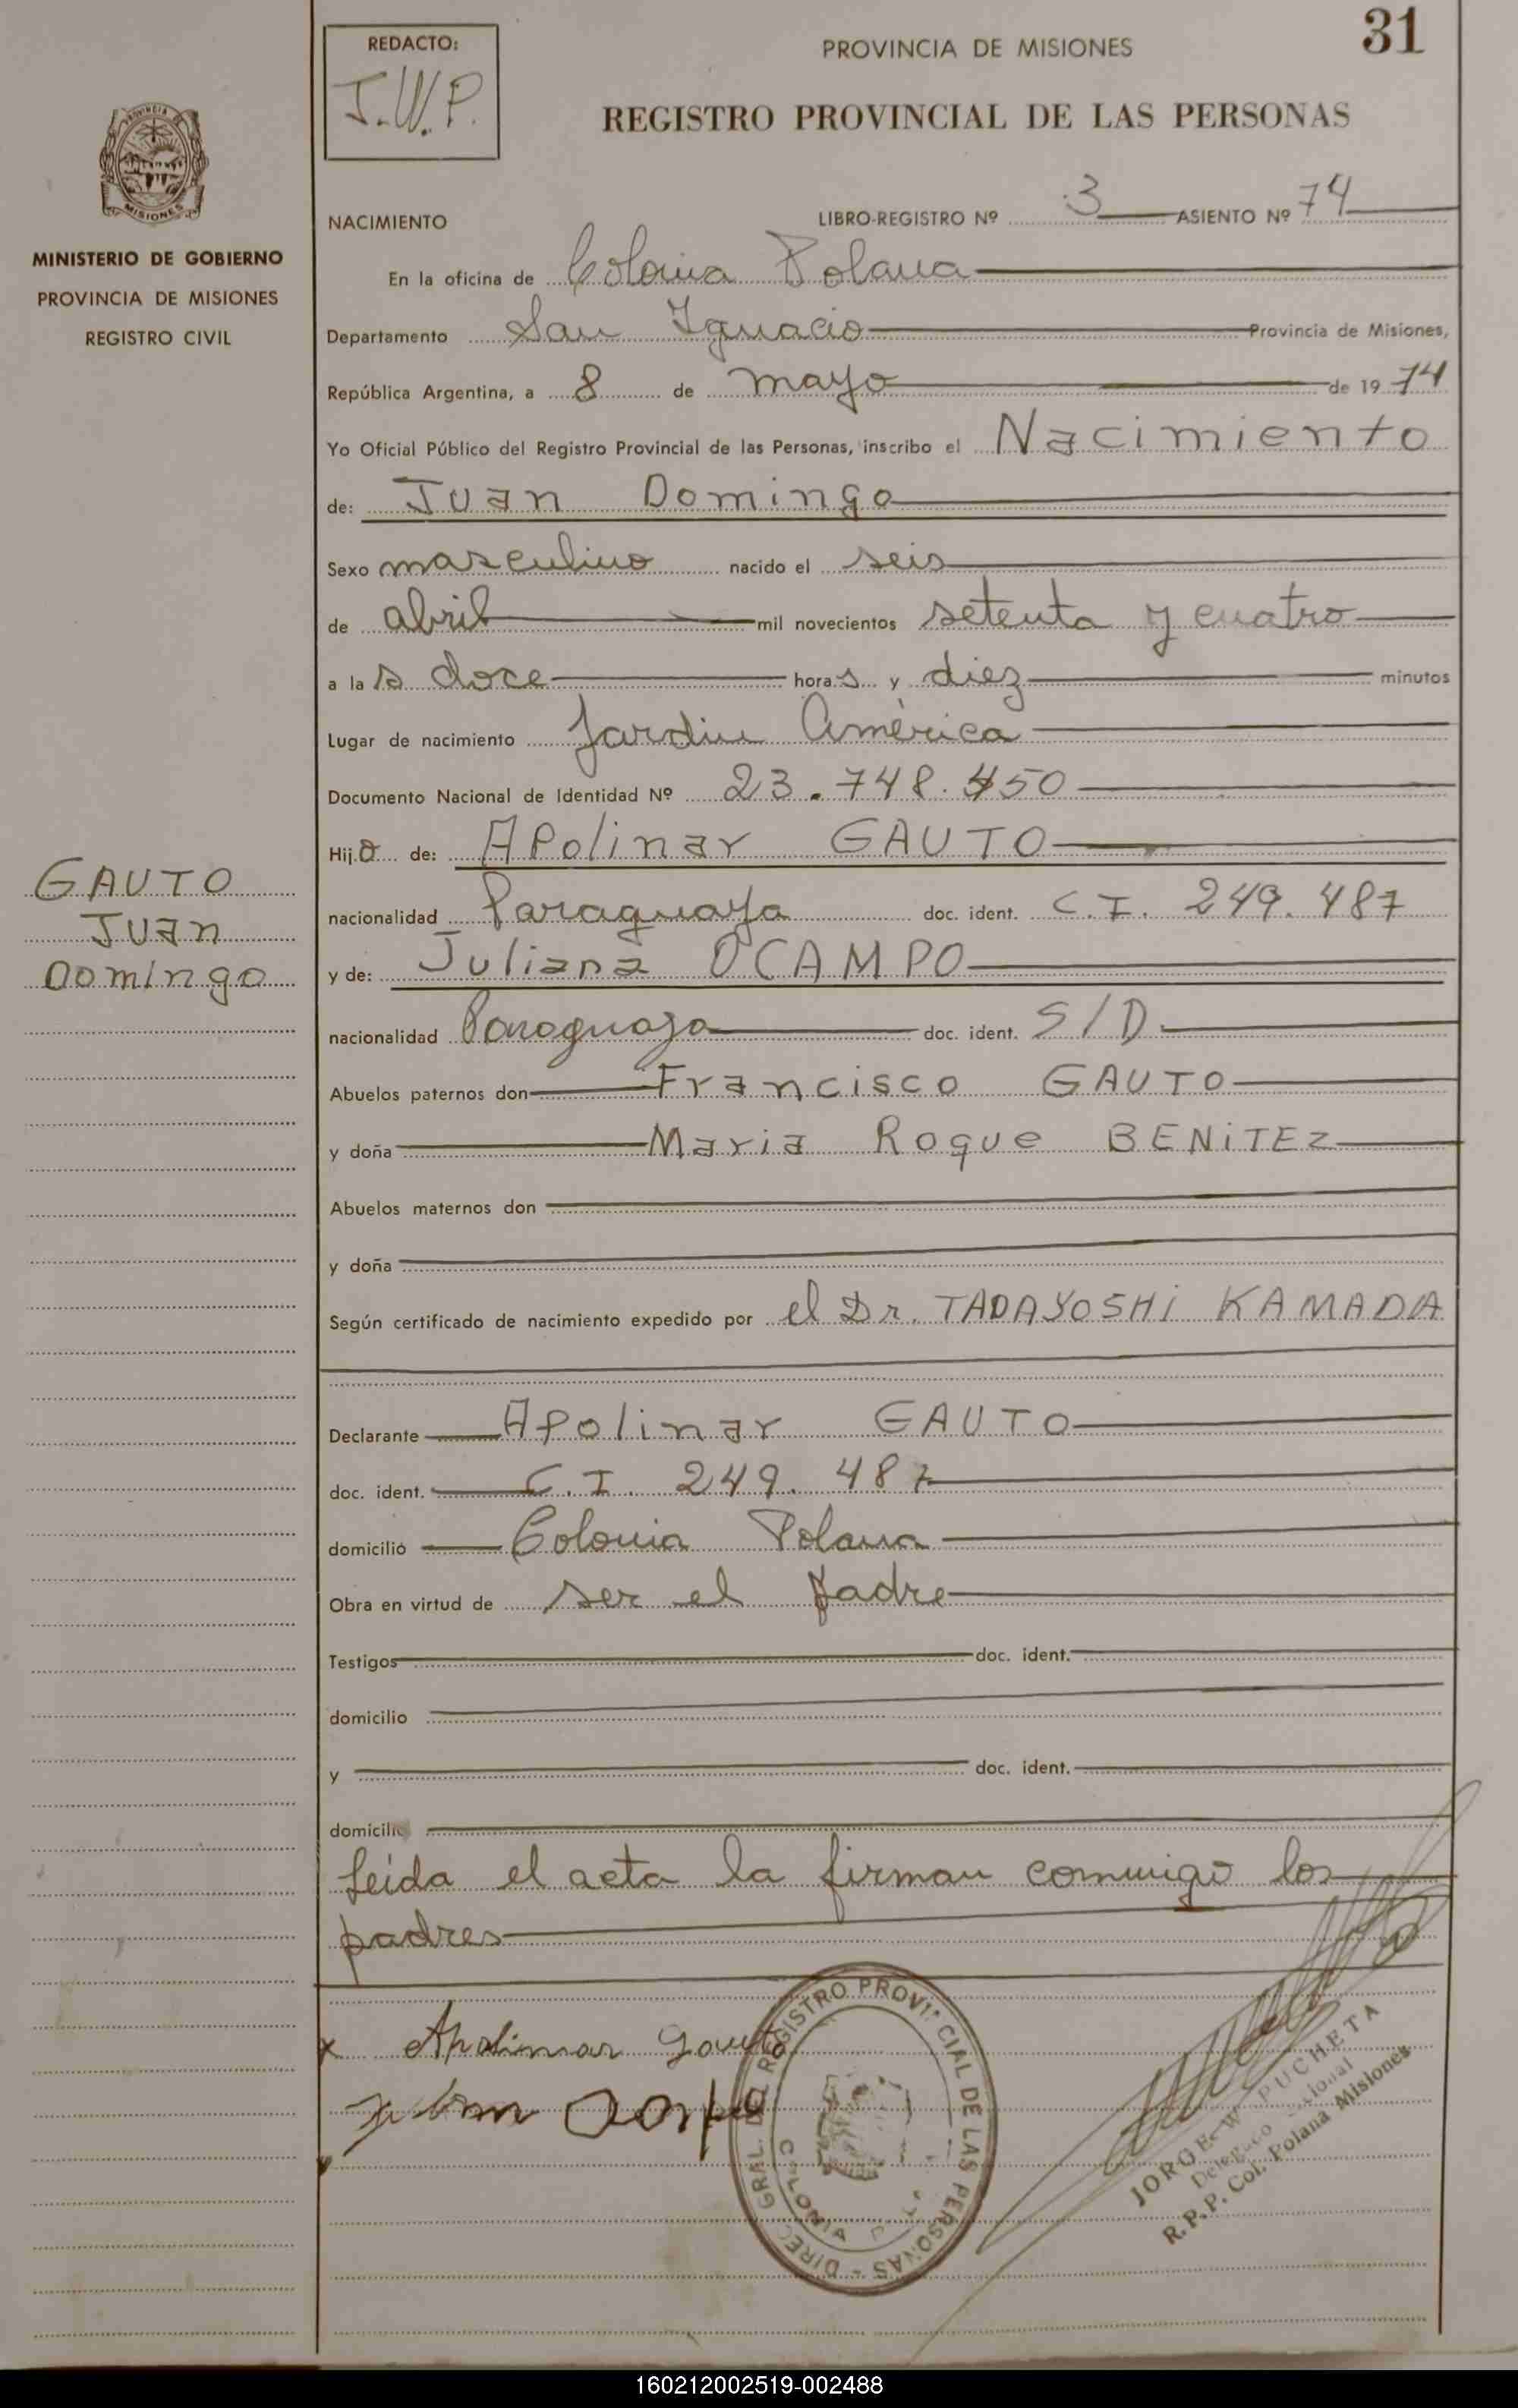 31
REDACTO:
J.W.P.
PROVINCIA DE MISIONES
REGISTRO PROVINCIAL DE LAS PERSONAS
MISIONES
MINISTERIO DE GOBIERNO
PROVINCIA DE MISIONES
REGISTRO CIVIL
GAUTO
Juan
Domingo
NACIMIENTO LIBRO-REGISTRO Nº 3 ASIENTO Nº 74
En la oficina de Colonia Polana
Departamento San Ignacio Provincia de Misiones,
República Argentina, a 8 de mayo de 1974
Yo Oficial Público del Registro Provincial de las Personas, inscribo el Nacimiento
de: Juan Domingo
Sexo masculino nacido el seis
de abril mil novecientos setenta y cuatro
a las doce horas y diez minutos
Lugar de nacimiento Jardin América
Documento Nacional de Identidad Nº 23.748.450
Hijo de: Apolinar GAUTO
nacionalidad Paraguaya doc. ident. C.I. 249.487
y de: Juliana OCAMPO
nacionalidad Paraguaya doc. ident. S/D
Abuelos paternos don Francisco GAUTO
y doña Maria Roque BENITEZ
Abuelos maternos don
y doña
Según certificado de nacimiento expedido por el Dr. TADAYOSHI KAMADA
Declarante Apolinar GAUTO
doc. ident. C.I. 249.487
domicilio Colonia Polana
Obra en virtud de ser el padre
Testigos doc. ident.
domicilio
y doc. ident.
domicilio
Leida el acta la firman conmigo los
padres
x Apolinar Gauto
DIREC. GRAL. DEL REGISTRO PROVINCIAL DE LAS PERSONAS
COLONIA
JORGE W. PUCHETA
Delegado
R.P.P. Col. Polana Misiones
160212002519-002488